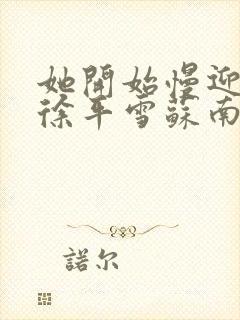 她開始慢迎
徐平雪蘇南
諾尔